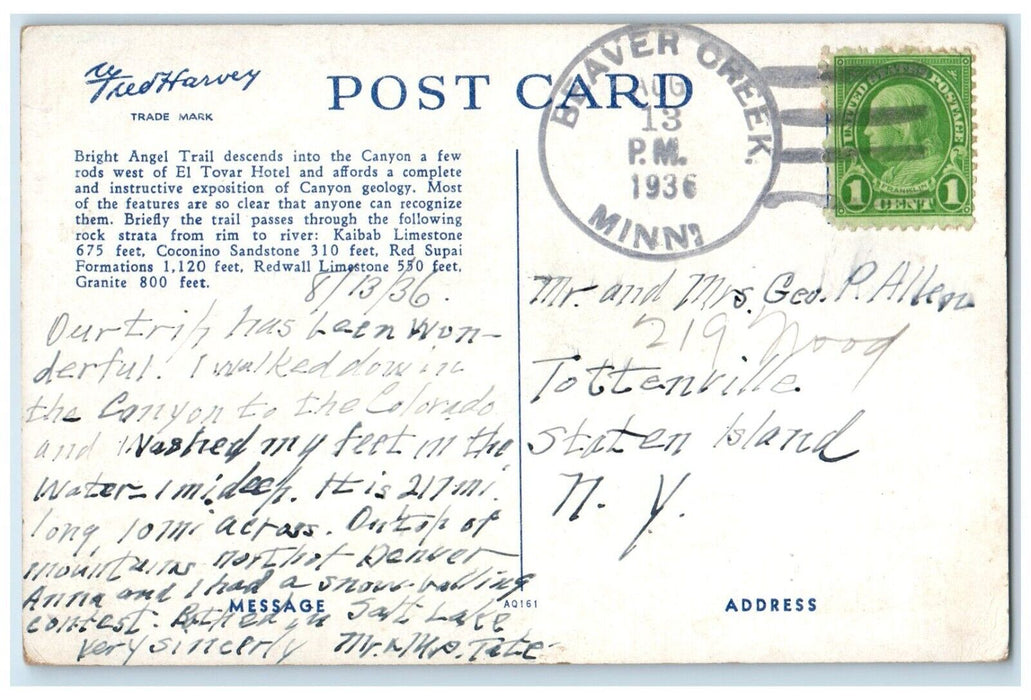 Fred Harvey
TRADE MARK
POST CARD
BEAVER CREEK.
AUG
13
P.M.
1936
MINN
UNITED STATES POSTAGE
FRANKLIN
1 CENT 1
Bright Angel Trail descends into the Canyon a few
rods west of El Tovar Hotel and affords a complete
and instructive exposition of Canyon geology. Most
of the features are so clear that anyone can recognize
them. Briefly the trail passes through the following
rock strata from rim to river: Kaibab Limestone
675 feet, Coconino Sandstone 310 feet, Red Supai
Formations 1,120 feet, Redwall Limestone 550 feet,
Granite 800 feet.
8/13/36.
Our trip has been won-
derful. I walked down in
the Canyon to the Colorado
and washed my feet in the
water - 1 mi. deep. It is 217 mi.
long 10 mi across. On top of
mountains north of Denver
Anna and I had a snow-balling
contest. Bathed in Salt Lake
very sincerly Mr. & Mrs. Tate
Mr. and Mrs. Geo. P. Allen
219 Wood
Tottenville
Staten Island
N. Y.
MESSAGE
AQ161
ADDRESS